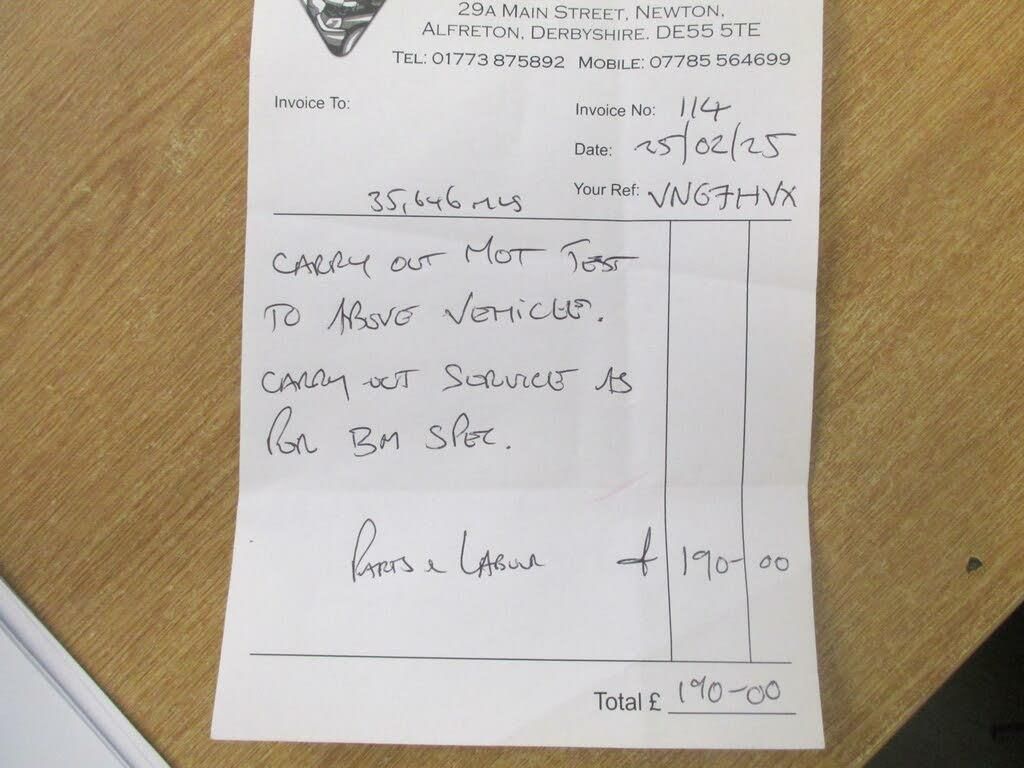 29A MAIN STREET, NEWTON,
ALFRETON, DERBYSHIRE. DE55 5TE
TEL: 01773 875892 MOBILE: 07785 564699
Invoice To:
Invoice No: 114
Date: 25/02/25
Your Ref: VN67HVX
35,646 MLS
CARRY OUT MOT TEST
TO ABOVE VEHICLE.
CARRY OUT SERVICE AS
PER BM SPEC.
PARTS & LABOUR £ 190-00
Total £ 190-00